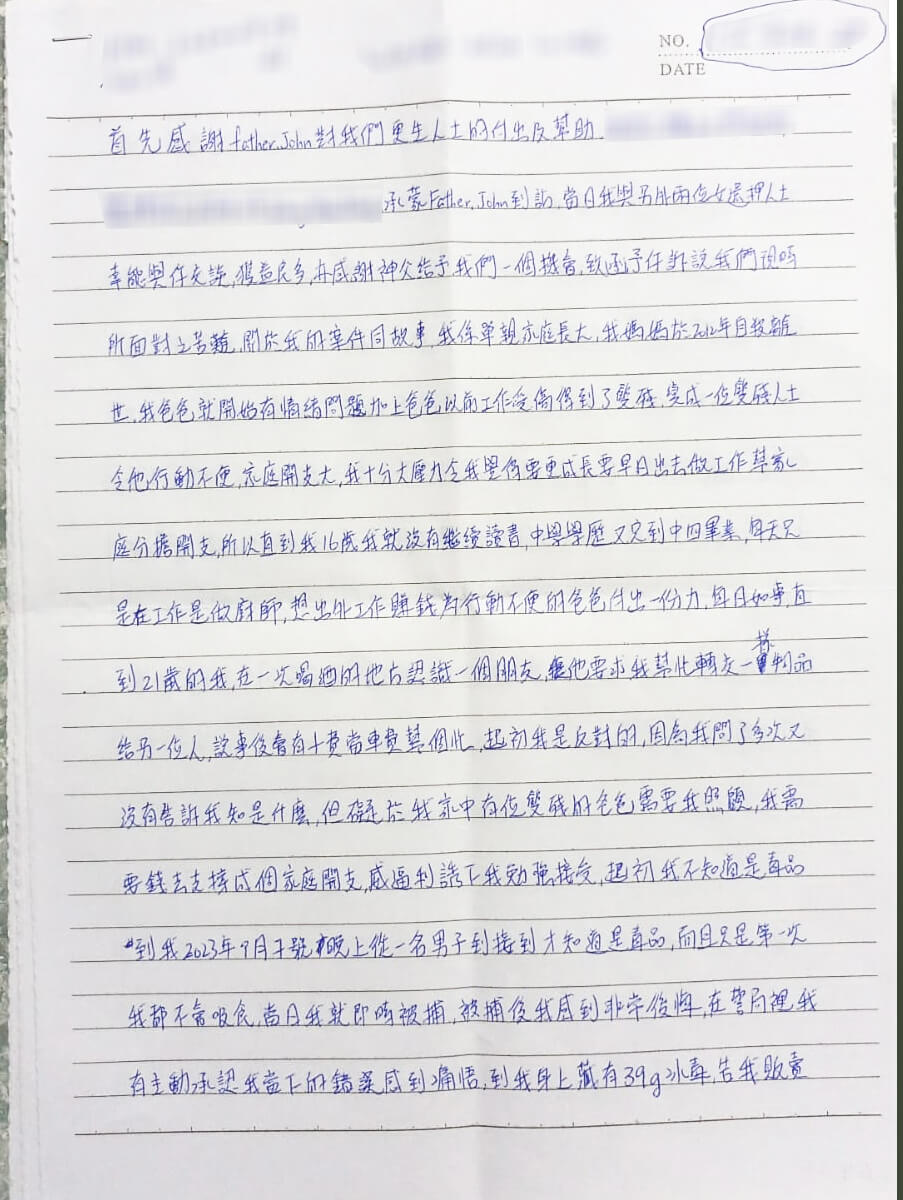 NO.
DATE
首先感謝father.John對我們更生人士的付出及幫助
承蒙Father.John到訪,當日我與另外兩位女還押人士
幸能與你交談,獲益良多,亦感謝神父給予我們一個機會,致函予你訴說我們現時
所面對之苦難,關於我的案件同故事,我係單親家庭長大,我媽媽於2012年自殺離
世,我爸爸就開始有情緒問題加上爸爸以前工作受傷得到了雙殘,變成一位雙殘人士
令他行動不便,家庭開支大,我十分大壓力令我覺得要更成長要早日出去做工作幫家
庭分擔開支,所以直到我16歲我就沒有繼續讀書,中學學歷又只到中四畢業,每天只
是在工作是做廚師,想出外工作賺錢為行動不便的爸爸付出一份力,每日如事,直
到21歲的我,在一次喝酒的地方認識一個朋友,他要求我幫忙轉交一樣物品
給另一位人,說事後會有十費當車費幫個忙,起初我是反對的,因為我問了多次又
沒有告訴我知是什麼,但礙於我家中有位雙殘的爸爸需要我照顧,我需
要錢去支撐成個家庭開支,威逼利誘下我勉強接受,起初我不知道是毒品
到我2023年9月號晚上從一名男子到接到才知道是毒品,而且只是第一次
我都不會吸食,當日我就即時被捕,被捕後我感到非常後悔,在警局裡我
有主動承認我當下的錯誤感到痛悟,到我身上藏有39g冰毒,告我販賣